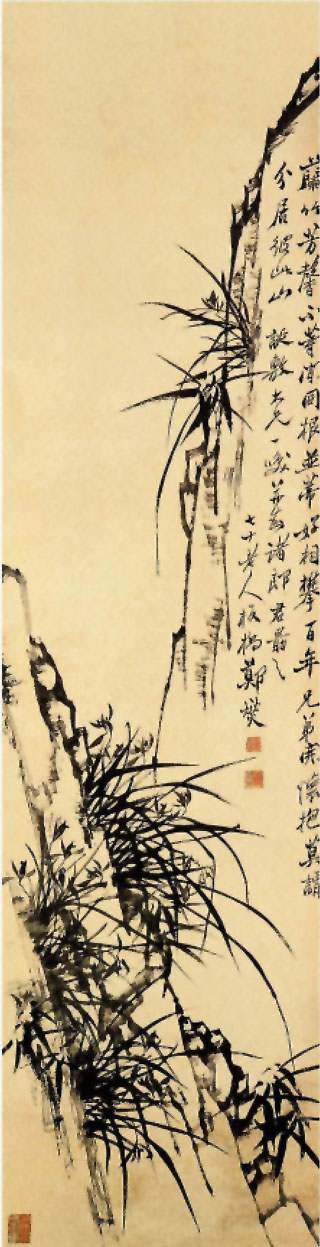 蘭竹芳馨不等閒同根並蒂好相攀百年兄弟開懷抱莫謂
分居彼此山 敷大兄一咲並示諸郎君
七十老人板橋鄭燮